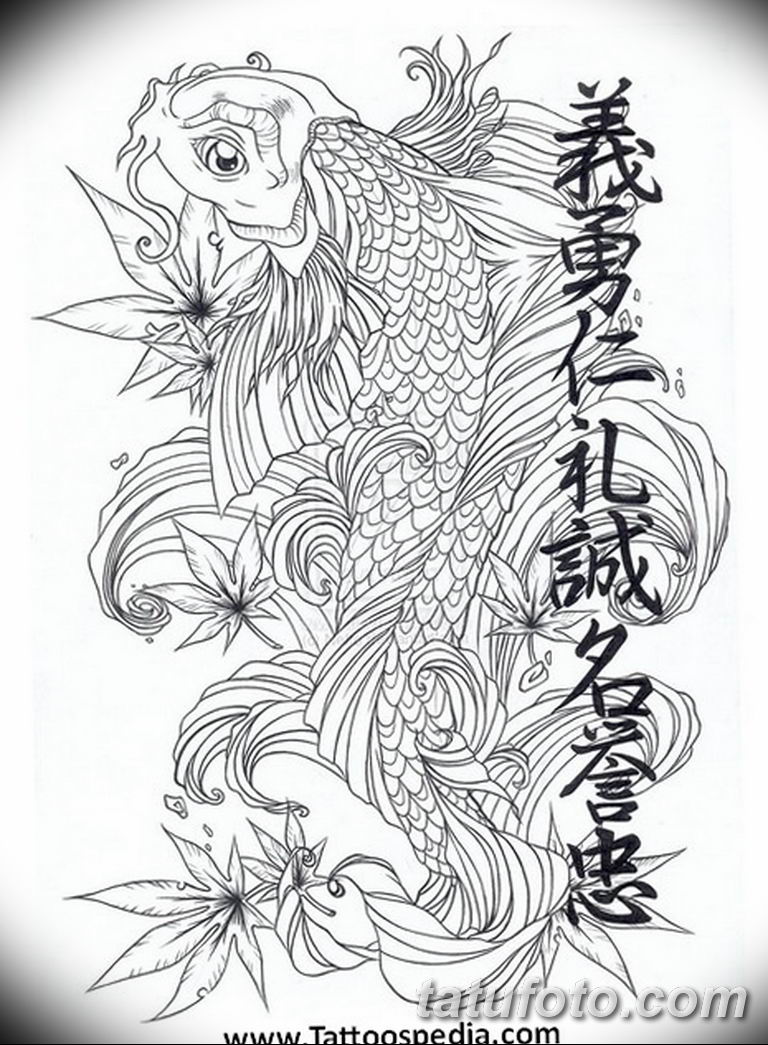 義勇仁礼誠名誉忠
tatufoto.com
www.Tattoospedia.com